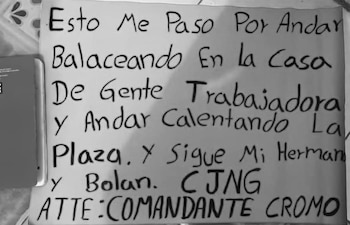 Esto Me Paso Por Andar
Balaceando En la Casa
De Gente Trabajadora
y Andar Calentando La
Plaza. Y Sigue Mi Herman
y Bolan. CJNG
ATTE: COMANDANTE CROMO